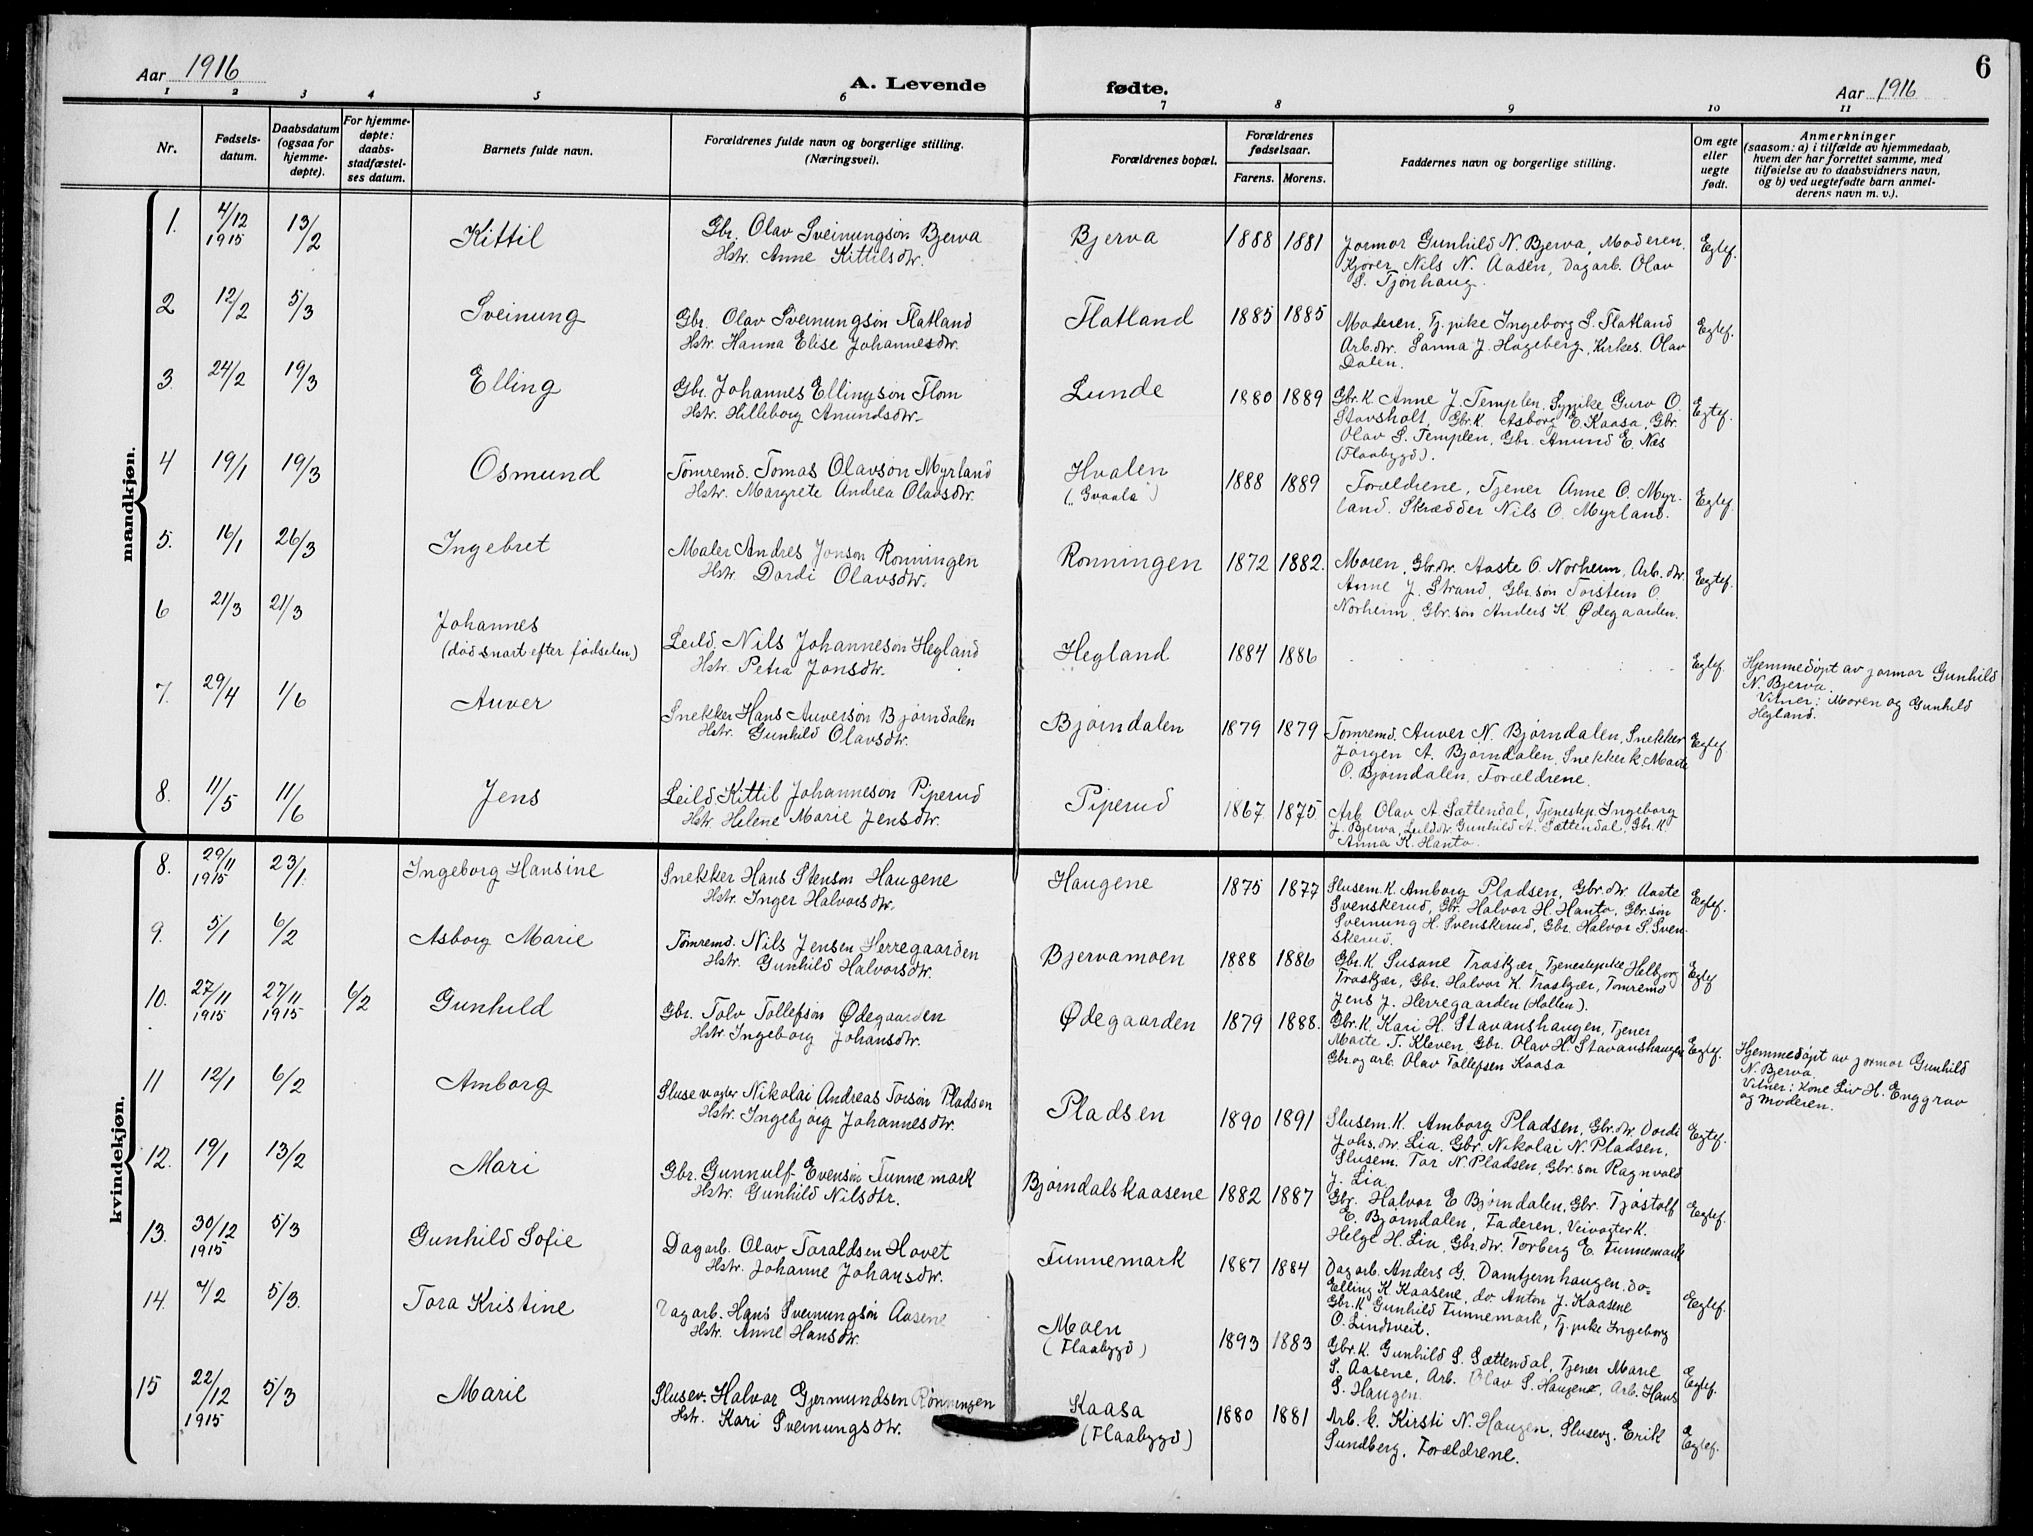 6
Aar 1916
A. Levende fødte.
Aar 1916
1 2 3 4 5 6 7 8 9 10 11
Nr.
Fødsels-
datum.
Daabsdatum
(ogsaa for
hjemme-
døpte).
For hjemme-
døpte:
daabs-
stadfæstel-
ses datum.
Barnets fulde navn.
Forældrenes fulde navn og borgerlige stilling.
(Næringsvei).
Forældrenes bopæl.
Forældrenes
fødselsaar.
Farens. Morens.
Faddernes navn og borgerlige stilling.
Om egte
eller
uegte
født.
Anmerkninger
(saasom: a) i tilfælde av hjemmedaab,
hvem der har forrettet samme, med
tilføielse av to daabsvidners navn,
og b) ved uegtefødte barn anmel-
derens navn m. v.).
mandkjøn.
1. 4/12 1915 13/2 Kittil
Gbr. Olav Sveinungson Bjerva
Hstr. Anne Kittilsdtr.
Bjerva 1888 1881
Formor Gunhild N. Bjerva, Moderen.
Kjører Nils N. Aasen, Dagarb. Olav
S. Tjønhaug.
Egtef.
2 12/2 5/3 Sveinung
Gbr. Olav Sveinungson Flatland
Hstr. Hanna Elise Johannesdtr.
Flatland 1885 1885
Moderen, Tj.pike Ingeborg S. Flatland
Arb.dtr. Sanna J. Hageberg, Kirkes. Olav
Dalen.
Egtef.
3. 24/2 19/3 Elling
Gbr. Johannes Ellingson Flom
Hstr. Hilleborg Anundsdtr.
Lunde 1880 1889
Gbr.K. Anne J. Templen, Sypike Guro O.
Stavsholt, Gbr.K. Asborg E. Kaasa, Gbr.
Olav S. Templen, Gbr. Anund E. Næs
(Flaabygd).
Egtef.
4 19/1 19/3 Osmund
Tømremd. Tomas Olavson Myrland
Hstr. Margrete Andrea Olavsdtr.
Hvalen
(Gvaala)
1888 1889
Forældrene, Tjener Anne O. Myr-
land. Skrædder Nils O. Myrland.
Egtef.
5. 16/1 26/3 Ingebret
Maler Andres Jonson Ronningen
Hstr. Dordi Olavsdtr.
Ronningen 1872 1882.
Moren, Gbr.dtr. Aaste O. Norheim, Arb.dtr.
Anne J. Strand, Gbr.søn Torstein O.
Norheim, Gbr.søn Anders K. Ødegaarden.
Egtef.
6 21/3 21/3 Johannes
(død snart efter fødselen)
Leild. Nils Johanneson Hegland
Hstr. Petra Jonsdtr.
Hegland 1884 1886
Egtef.
Hjemmedøpt av jormor Gunhild
N. Bjerva.
Vitner: Moren og Gunhild
Hegland.
7. 29/4 1/6 Auver
Snekker Hans Auverson Bjørndalen
Hstr. Gunhild Olavsdtr.
Bjørndalen 1879 1879
Tømremd. Auver N. Bjørndalen, Snekker
Jørgen A. Bjørndalen, Snekker k. Marte
O. Bjørndalen, Forældrene.
Egtef.
8. 11/5 11/6 Jens
Leild. Kittil Johanneson Piperud
Hstr. Helene Marie Jensdtr.
Piperud 1867 1875
Arb. Olav A. Sættendal, Tjenestep. Ingeborg
J. Bjerva, Leild.dtr. Gunhild A. Sættendal, Gbr.K.
Anna K. Hanto.
kvindekjøn.
8. 29/11 1915 23/1 Ingeborg Hansine
Snekker Hans Stenson Haugene
Hstr. Inger Halvorsdtr.
Haugene 1875 1877
Slusem.K. Amborg Pladsen, Gbr.dtr. Aaste
Svenskerud, Gbr. Halvor H. Hanto, Gbr.søn
Sveinung H. Svenskerud, Gbr. Halvor S. Sven-
skerud.
Egtef.
9. 5/1 6/2 Asborg Marie
Tømremd. Nils Jensen Herregaarden
Hstr. Gunhild Halvorsdtr.
Bjervamoen 1888 1886
Gbr.K. Susane Traskjær, Tjenestepike Helbjorg
Traskjær, Gbr. Halvor K. Traskjær, Tømremd
Jens J. Herregaarden (Hollen).
Egtef
10. 27/11 1915 27/11 1915 6/2 Gunhild
Gbr. Tolv Tollefson Ødegaarden
Hstr. Ingeborg Johansdtr.
Ødegaarden 1879 1888.
Gbr.K. Kari H. Stavanshaugen, Tjener
Marte T. Kleven, Gbr. Olav H. Stavanshaugen
Gbr. og arb. Olav Tollefsen Kaasa
Egtef.
Hjemmedøpt av jormor Gunhild
N. Bjerva.
Vitner: Kone Liv H. Enggrav
og moderen.
11 12/1 6/2 Amborg
Slusevogter Nikolai Andreas Torson Pladsen
Hstr. Ingebjørg Johannesdtr.
Pladsen 1890 1891
Slusem.K. Amborg Pladsen, Gbr.dtr. Dordi
Johs.dtr. Lia, Gbr. Nikolai N. Pladsen,
Slusem. Tor N. Pladsen, Gbr.søn Ragnvald
J. Lia.
Egtef.
12. 19/1 13/2 Mari
Gbr. Gunnulf Evenson Tunnemark
Hstr. Gunhild Nilsdtr.
Bjørndalskaasene 1882 1887
Gbr. Halvor E. Bjørndalen, Gbr. Tjøstolf
E. Bjørndalen, Faderen, Veivogter K.
Helge H. Lia, Gbr.dtr. Torberg E. Tunnemark
Egtef.
13. 30/12 1915 5/3 Gunhild Sofie
Dagarb. Olav Toraldsen Hovet
Hstr. Johanne Johansdtr.
Tunnemark 1887 1884
Dagarb. Anders G. Damtjernhaugen, do-
Elling K. Kaasene, do. Anton J. Kaasene
Gbr.K Gunhild Tunnemark, Tj.pike Ingeborg
O. Lindtveit.
Egtef.
14. 7/2 5/3. Tora Kristine
Dagarb. Hans Sveinungson Aasene
Hstr. Anne Hansdtr.
Moen
(Flaabygd)
1893 1883
Gbr.K. Gunhild S. Sættendal, Tjener Marie
S. Aasene, Arb. Olav S. Haugene, Arb. Hans
S. Haugen.
Egtef.
15 22/12 1915 5/3 Marie
Slusev. Halvor Gjermundsen Rønningen
Hstr. Kari Sveinungsdtr.
Kaasa
(Flaabygd)
1880 1881
Arb.k. Kirsti N. Haugen, Slusevg. Erik
Sundberg, Forældrene.
Egtef.